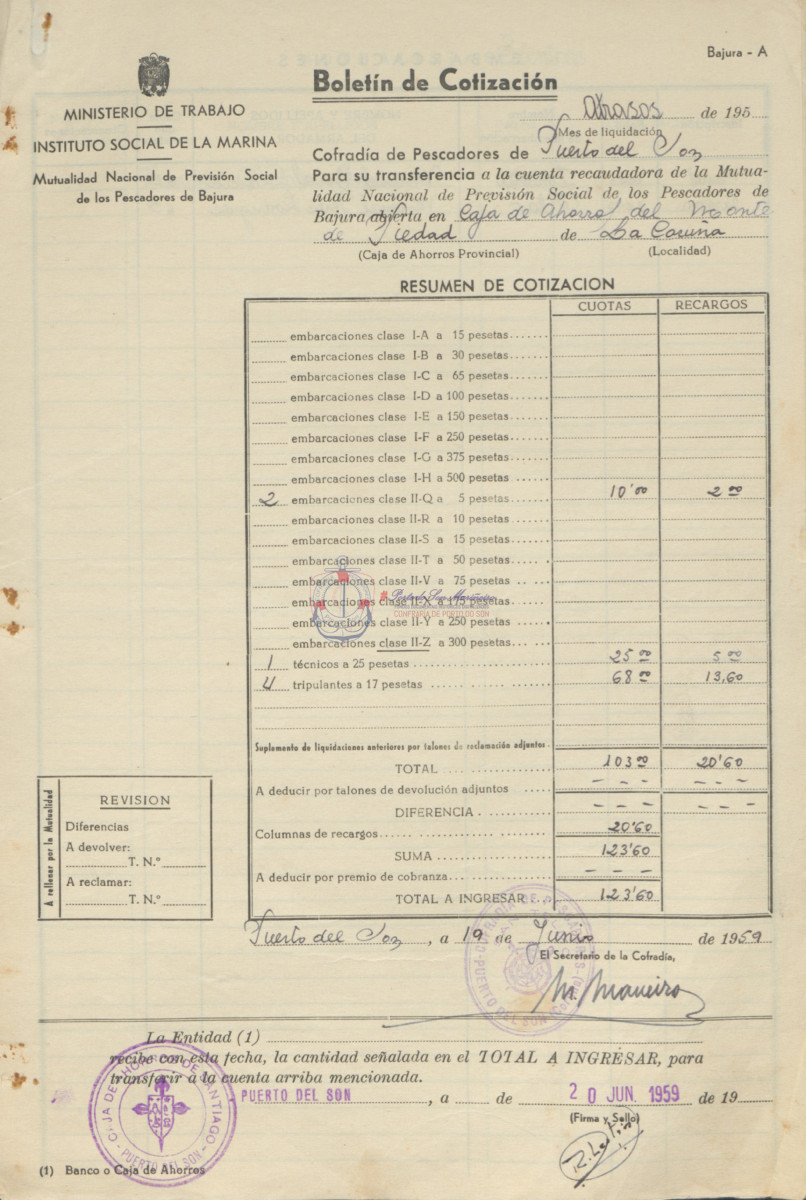 Bajura - A
Boletín de Cotización
MINISTERIO DE TRABAJO
INSTITUTO SOCIAL DE LA MARINA
Mutualidad Nacional de Previsión Social
de los Pescadores de Bajura
Atrasos de 195
Mes de liquidación
Cofradía de Pescadores de Puerto del Son
Para su transferencia a la cuenta recaudadora de la Mutua-
lidad Nacional de Previsión Social de los Pescadores de
Bajura, abierta en Caja de Ahorros del Monte
de Piedad de La Coruña
(Caja de Ahorros Provincial) (Localidad)
RESUMEN DE COTIZACION
CUOTAS RECARGOS
embarcaciones clase I-A a 15 pesetas
embarcaciones clase I-B a 30 pesetas
embarcaciones clase I-C a 65 pesetas
embarcaciones clase I-D a 100 pesetas
embarcaciones clase I-E a 150 pesetas
embarcaciones clase I-F a 250 pesetas
embarcaciones clase I-G a 375 pesetas
embarcaciones clase I-H a 500 pesetas
2 embarcaciones clase II-Q a 5 pesetas 10'00 2 00
embarcaciones clase II-R a 10 pesetas
embarcaciones clase II-S a 15 pesetas
embarcaciones clase II-T a 50 pesetas
embarcaciones clase II-V a 75 pesetas
embarcaciones clase II-X a 175 pesetas
CONFRARÍA DE PORTO DO SON
embarcaciones clase II-Y a 250 pesetas
embarcaciones clase II-Z a 300 pesetas
1 técnicos a 25 pesetas 25 00 5 00
4 tripulantes a 17 pesetas 68 00 13,60
Suplemento de liquidaciones anteriores por talones de reclamación adjuntos
TOTAL 103 00 20'60
A deducir por talones de devolución adjuntos - - - - - -
DIFERENCIA - - - - - -
Columnas de recargos 20'60
SUMA 123'60
A deducir por premio de cobranza - - -
TOTAL A INGRESAR 123'60
A rellenar por la Mutualidad
REVISION
Diferencias
A devolver:
T. N.º
A reclamar:
T. N.º
Puerto del Son, a 19 de Junio de 1959
El Secretario de la Cofradía,
M. Maneiro
La Entidad (1)
recibe con esta fecha, la cantidad señalada en el TOTAL A INGRESAR, para
transferir a la cuenta arriba mencionada.
PUERTO DEL SON, a de 20 JUN. 1959 de 19
(Firma y Sello)
CAJA DE AHORROS DE SANTIAGO
PUERTO DEL SON
(1) Banco o Caja de Ahorros